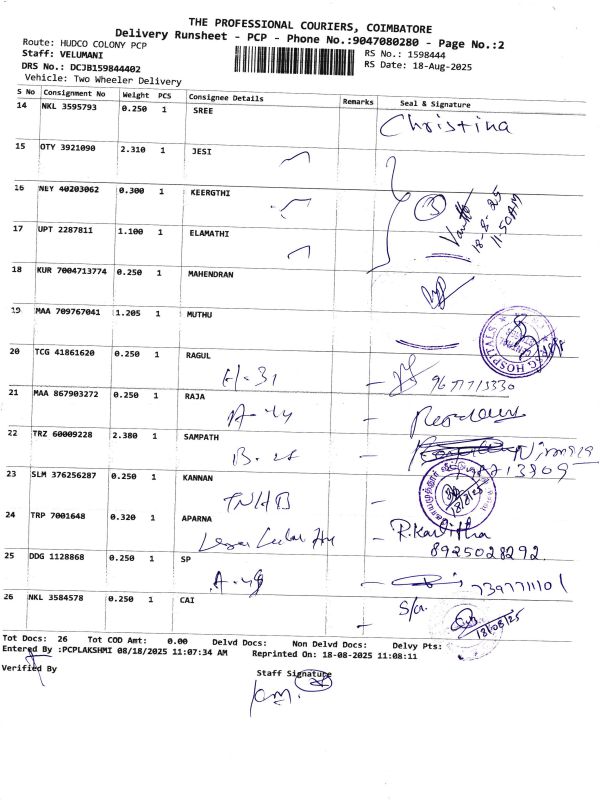 THE PROFESSIONAL COURIERS, COIMBATORE
Delivery Runsheet - PCP - Phone No.:9047080280 - Page No.:2
Route: HUDCO COLONY PCP
RS No.: 1598444
Staff: VELUMANI
RS Date: 18-Aug-2025
DRS No.: DCJB159844402
Vehicle: Two Wheeler Delivery
S No Consignment No Weight PCS Consignee Details Remarks Seal & Signature
14 NKL 3595793 0.250 1 SREE
Christina
15 OTY 3921090 2.310 1 JESI
16 NEY 40203062 0.300 1 KEERGTHI
3
18-8-25
11:50AM
17 UPT 2287811 1.100 1 ELAMATHI
18 KUR 7004713774 0.250 1 MAHENDRAN
19 MAA 709767041 1.205 1 MUTHU
HOSPITALS
20 TCG 41861620 0.250 1 RAGUL
H-31
21 MAA 867903272 0.250 1 RAJA
A-44
22 TRZ 60009228 2.380 1 SAMPATH
23 SLM 376256287 0.250 1 KANNAN
TNHB
18/8/25
24 TRP 7001648 0.320 1 APARNA
R.Kavitha
8925028292
25 DDG 1128868 0.250 1 SP
7397711101
26 NKL 3584578 0.250 1 CAI
18/08/25
Tot Docs: 26 Tot COD Amt: 0.00 Delvd Docs: Non Delvd Docs: Delvy Pts:
Entered By :PCPLAKSHMI 08/18/2025 11:07:34 AM Reprinted On: 18-08-2025 11:08:11
Verified By
Staff Signature